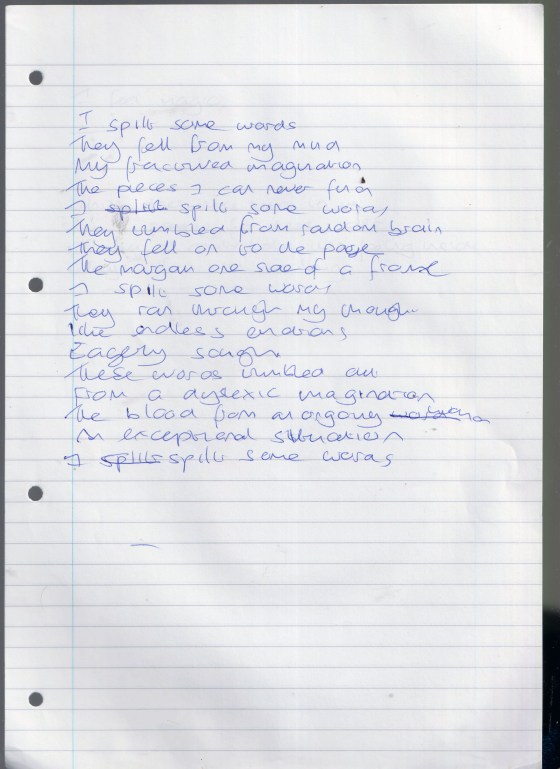 I spilt some words
They fell from my mind
My fractured imagination
The pieces I can never find
I spilt spilt some words
They tumbled from random brain
They fell on to the page
The margan one side of a frame
I spilt some words
They ran through my though
like endless emotions
Eagerly sough
These words tumbled out
From a dyslexic imagination
The blood from an ongoing
An exceptional situation
I spilt spilt some words